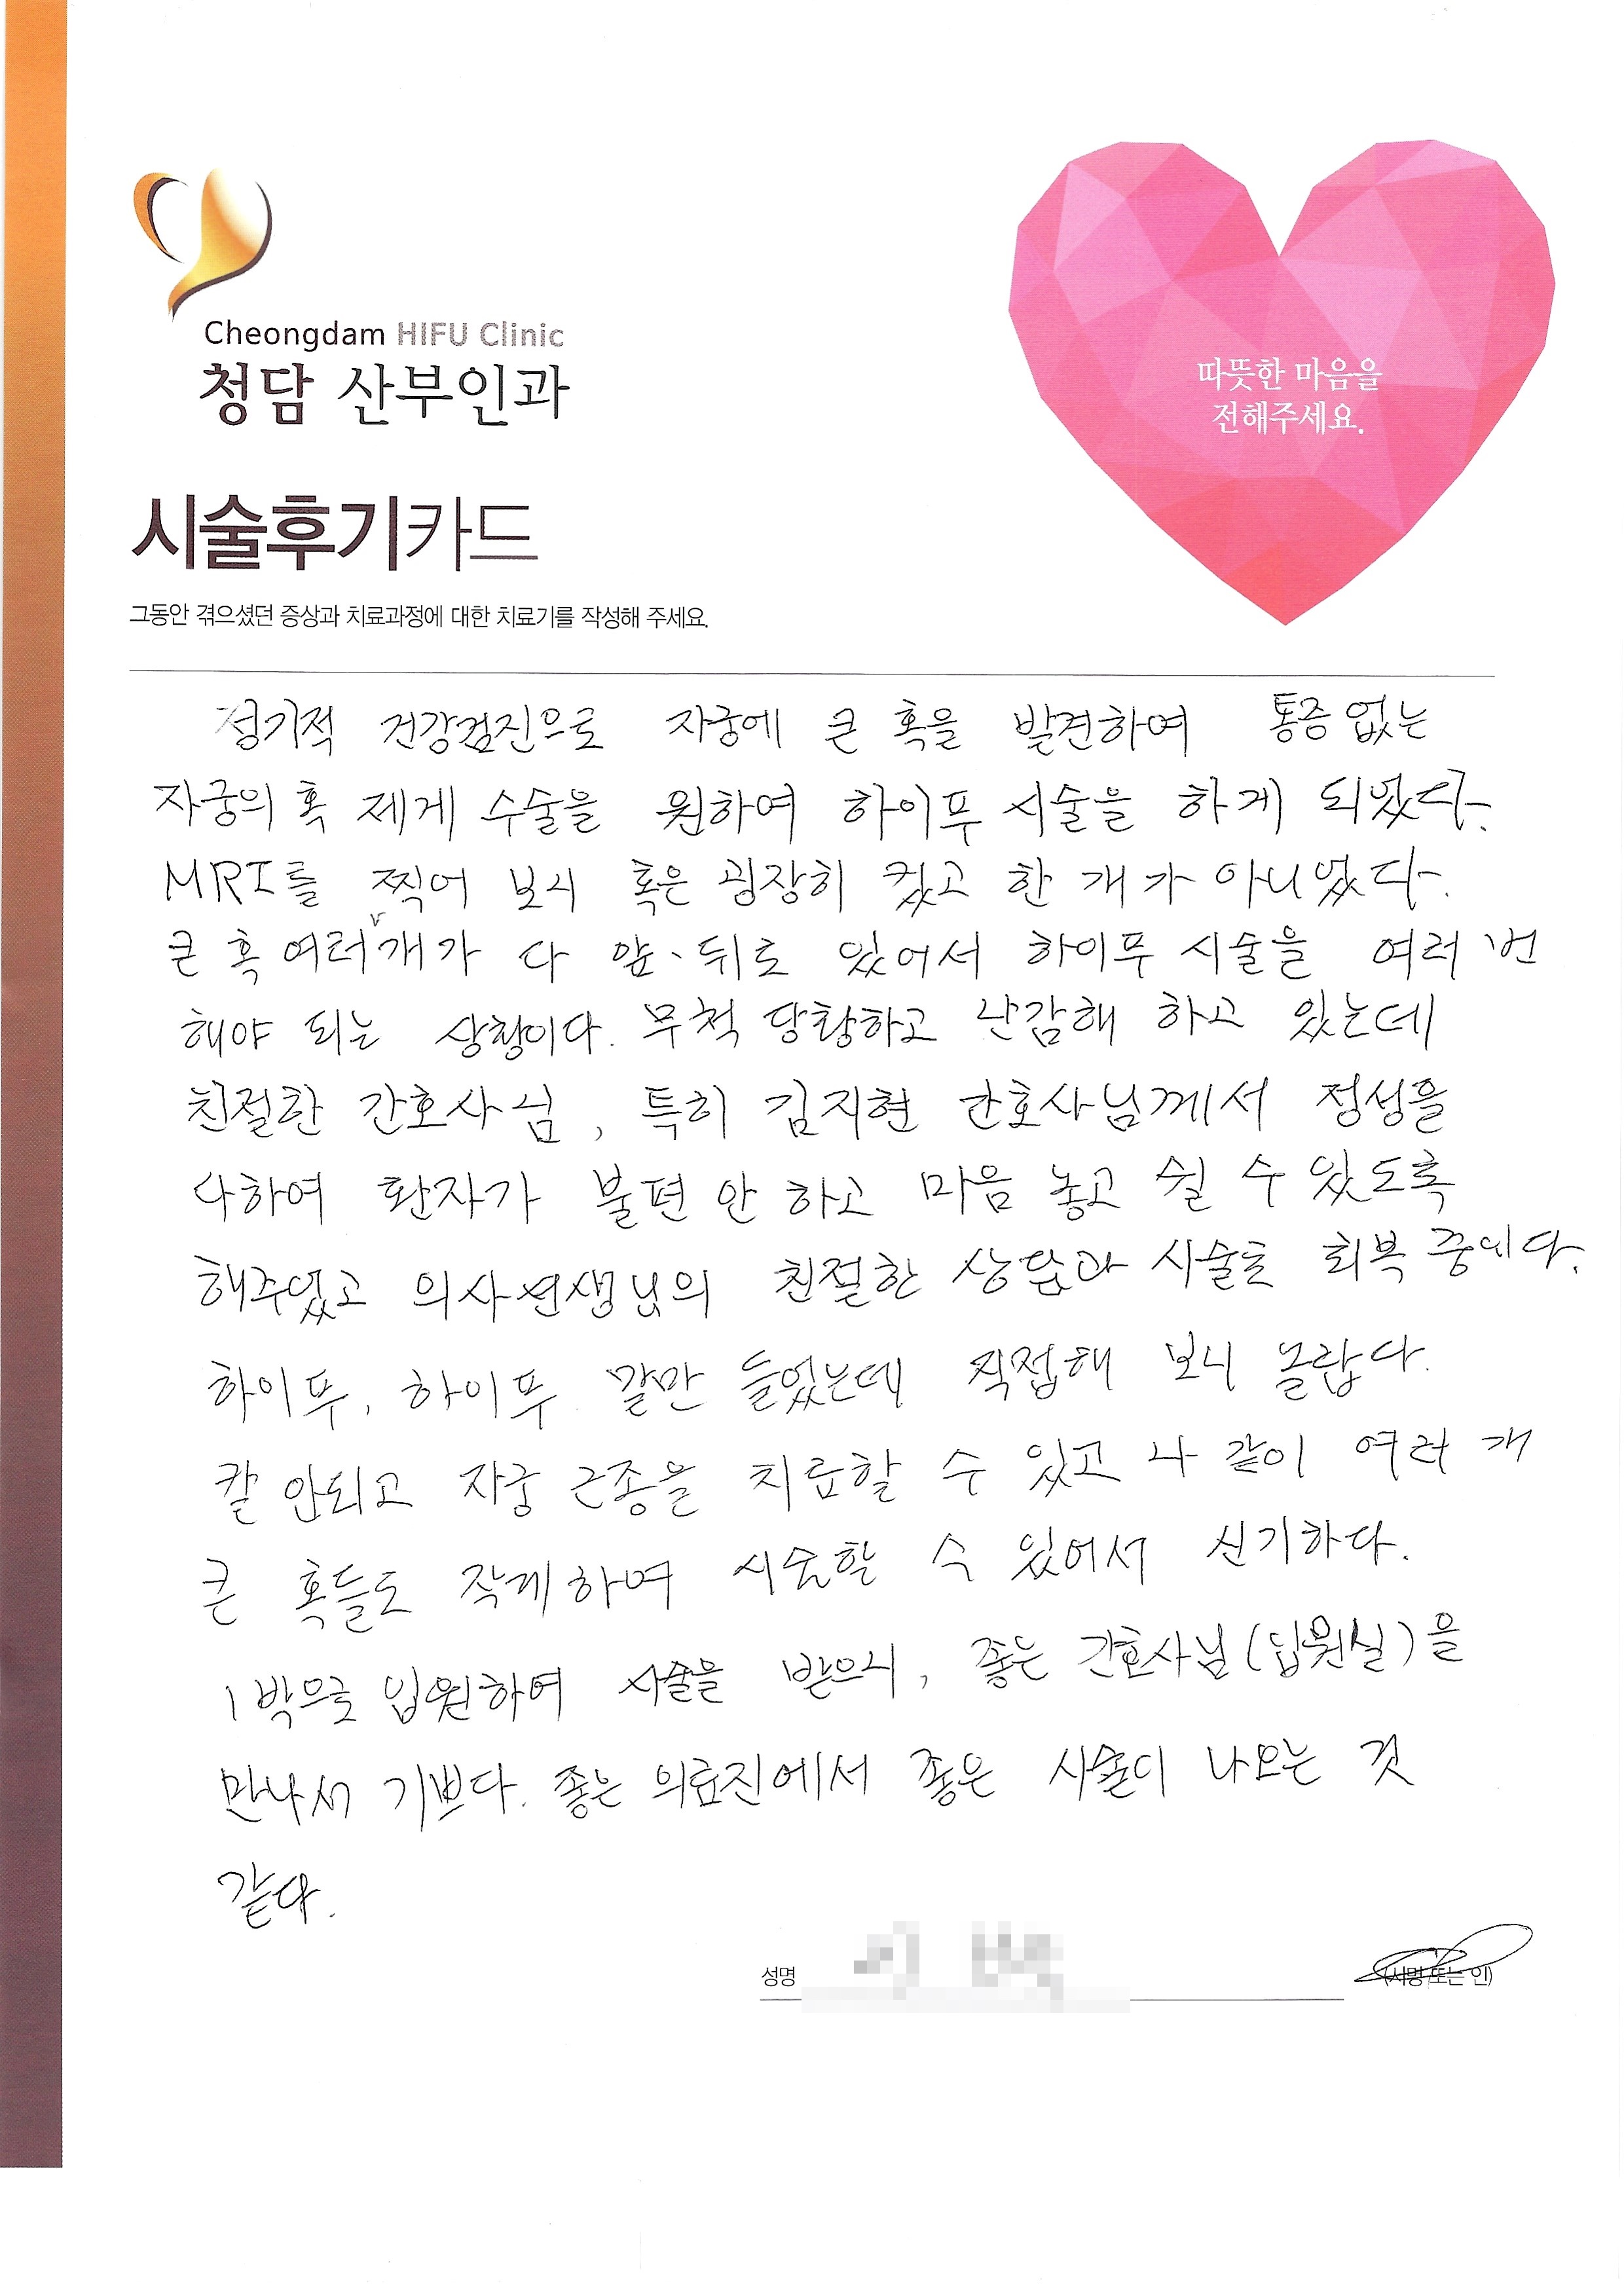 Cheongdam HIFU Clinic
청담 산부인과
따뜻한 마음을
전해주세요.
시술후기카드
그동안 겪으셨던 증상과 치료과정에 대한 치료기를 작성해 주세요.
정기적 건강검진으로 자궁에 큰 혹을 발견하여 통증 없는
자궁의 혹 제게 수술을 원하여 하이푸 시술을 하게 되었다.
MRI를 찍어 보니 혹은 굉장히 컸고 한 개가 아니었다.
큰 혹 여러 개가 다 앞、뒤로 있어서 하이푸 시술을 여러 번
해야 되는 상황이다. 무척 당황하고 난감해 하고 있는데
친절한 간호사님, 특히 김지현 간호사님께서 정성을
다하여 환자가 불편 안 하고 마음 놓고 쉴 수 있도록
해주었고 의사선생님의 친절한 상담과 시술로 회복 중이다.
하이푸, 하이푸 말만 들었는데 직접해 보니 놀랍다.
칼 안되고 자궁 근종을 치료할 수 있고 나 같이 여러 개
큰 혹들도 작게하여 시술할 수 있어서 신기하다.
1박으로 입원하여 시술을 받으니, 좋은 간호사님(입원실)을
만나서 기쁘다. 좋은 의료진에서 좋은 시술이 나오는 것
같다.
성명 (서명 또는 인)